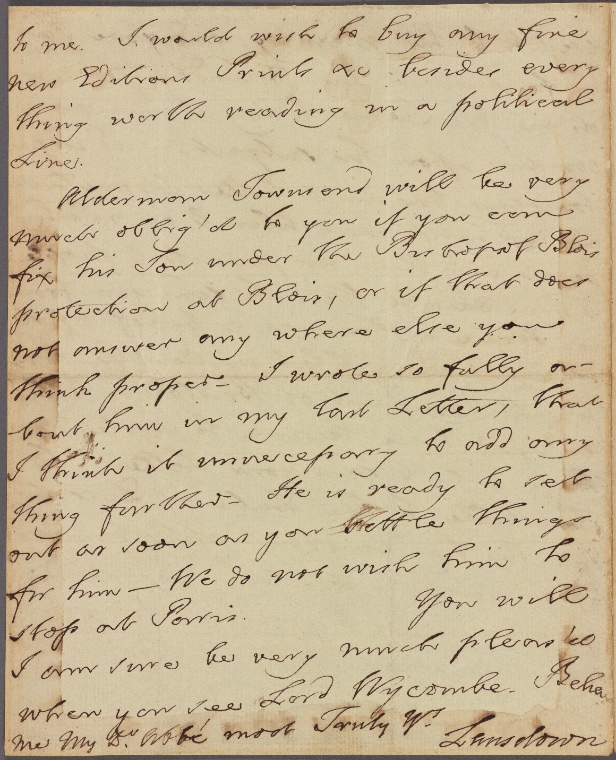 to me. I would wish to buy any fine
new Editions Prints &c besides every
thing worth reading in a political
Line.
Alderman Townsend will be very
much oblig'd to you if you can
fix his Son under the Bishop of Blois
protection at Blois, or if that does
not answer any where else you
think proper - I wrote so fully a-
bout him in my last Letter, that
I think it unnecessary to add any
thing farther - He is ready to set
out as soon as you settle things
for him - We do not wish him to
stop at Paris. You will
I am sure be very much pleas'd
when you see Lord Wycombe. Belie
me My Dr. Abbé most Truly Yrs
Lansdown